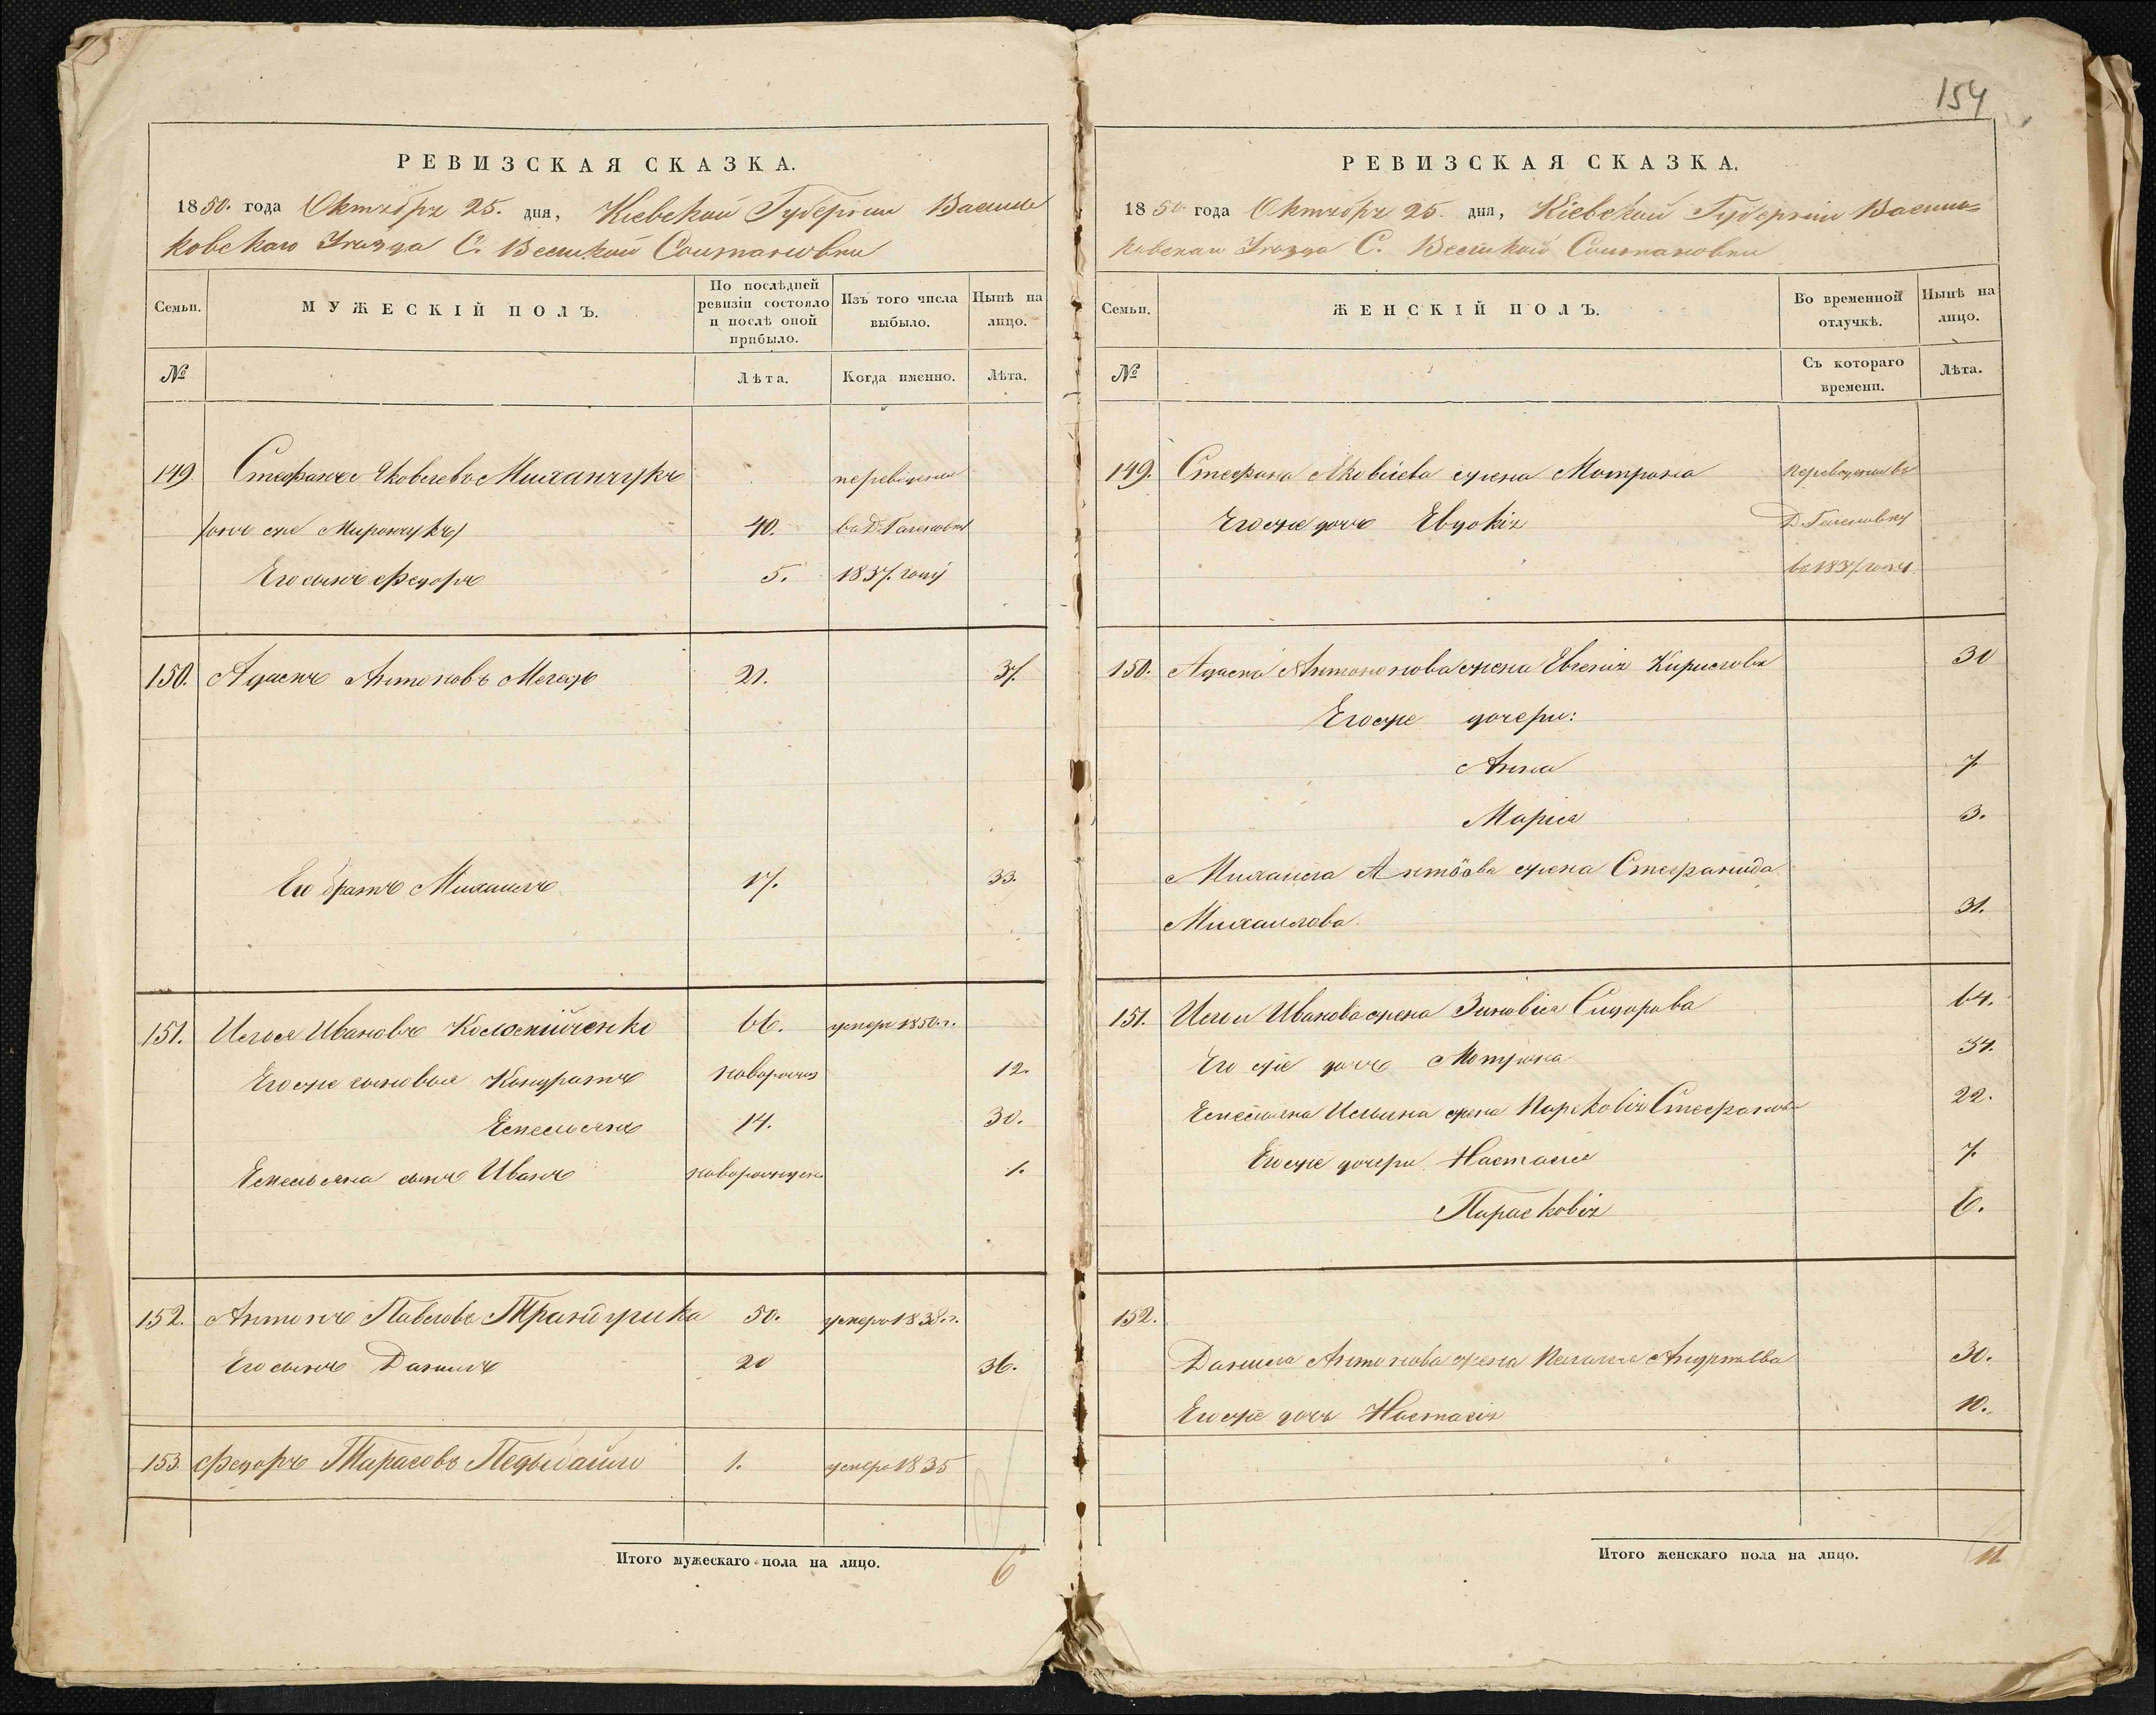 154
РЕВИЗСКАЯ СКАЗКА.
1850. года Октября 25. дня, Кіевской Губерніи Василь
ковскаго Уѣзда С. Великой Солтановки
Семьи.
МУЖЕСКІЙ ПОЛЪ.
По послѣдней ревизіи состояло и послѣ оной прибыло.
Изъ того числа выбыло.
Нынѣ на лицо.
№
Лѣта.
Когда именно.
Лѣта.
149. Стефанъ Яковлевъ Миханчукъ переведены
/онъ же Мирончукъ/ 40. въ Д.
Его сынъ Федоръ 5. 1837. году
150. Адамъ Антоновъ 21. 37.
Его братъ Михаилъ 17. 33.
151. Илья Ивановъ Коломийченко 66. умеръ 1850. г.
Его же сыновья Кондратъ новорожд 12.
Емельянъ 14. 30.
Емельяна сынъ Иванъ новорожден 1.
152. Антонъ Павловъ 50. умеръ 1838. г.
Его сынъ Данилъ 20 36.
153. Федоръ Тарасовъ 1. умеръ 1835
Итого мужескаго пола на лицо. 6
РЕВИЗСКАЯ СКАЗКА.
1850 года Октября 25. дня, Кіевской Губерніи Василь=
ковскаго Уѣзда С. Великой Солтановки
Семьи.
ЖЕНСКІЙ ПОЛЪ.
Во временной отлучкѣ.
Нынѣ на лицо.
№
Съ котораго времени.
Лѣта.
149. Стефана Яковлева жена Мотрона переведены въ
Его же дочь Евдокія Д.
въ 1837 году.
150. Адама Антонова жена Евгенія Кирилова 30
Его же дочери:
Анна 7.
Марія 3.
Михаила Антонова жена Стефанида
Михаилова. 31.
151. Ильи Иванова жена Зиновія Сидорова 64.
Его же дочь Мотрона 34.
Емельяна Ильина жена Парсковія Стефанова 22.
Его же дочери Настасія 7.
Парасковія 6.
152.
Данила Антонова жена Пелагея Андрѣева 30.
Его же дочь Настасія 10.
Итого женскаго пола на лицо. 11